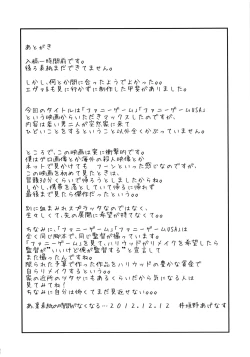 あとがき
入稿一時間前です。
後ろ表紙まだできてません。
しかし、何とか間に合ったようでよかった。
エヴァQも見に行かずに制作した甲斐がありました。
今回のタイトルは「ファニーゲーム」「ファニーゲームUSA」
という映画からいただきマックスしたのですが、
内容は若い男二人が突然家に来て
ひどいことをするということ以外全くかぶっていません。
ところで、この映画は実に衝撃的です。
僕はグロ画像とか海外の殺人映像とか
ネットで見かけても、ふーんといった感じなのですが、
この映画を初めて見たときは、
冒頭30分くらいで帰ろうとしましたからね。
しかし、携帯を落としていて帰るに帰れず
最後まで見たから傑作だった。
別に血まみれスプラッタなのではなく、
生々しくて、先の展開に希望が持てなくて
ちなみに、「ファニーゲーム」「ファニーゲームUSA」は
全く同じ脚本で、同じ監督が撮っています。
「ファニーゲーム」を見て、ハリウッドがリメイクを希望したら
監督が「いいけど俺が監督するぞ」と言まして
また撮ったんですね。
限られた予算で作った作品をハリウッドの豊かな資金で
自らリメイクするというの。
近所のツタヤにもあるくらいだから気になる人は
見てみてね!
ちなみに自分は怖くてまだUSA見てません。
あ、裏表紙の時間がなくなる…2012.12.12